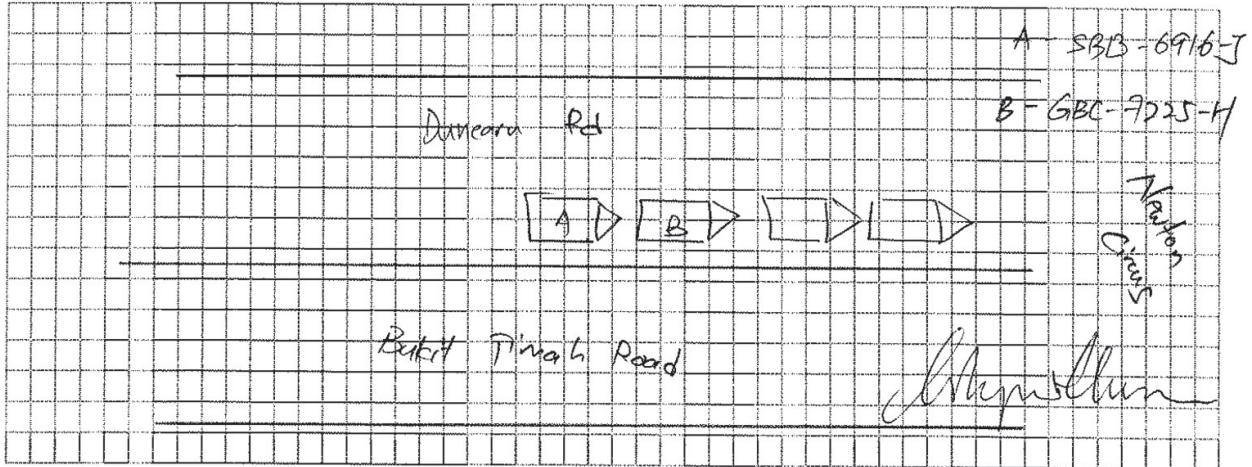 A - SBB-6916-J
B - GBC-7225-H
Dunearn Rd
A B
Newton
Circus
Bukit Timah Road